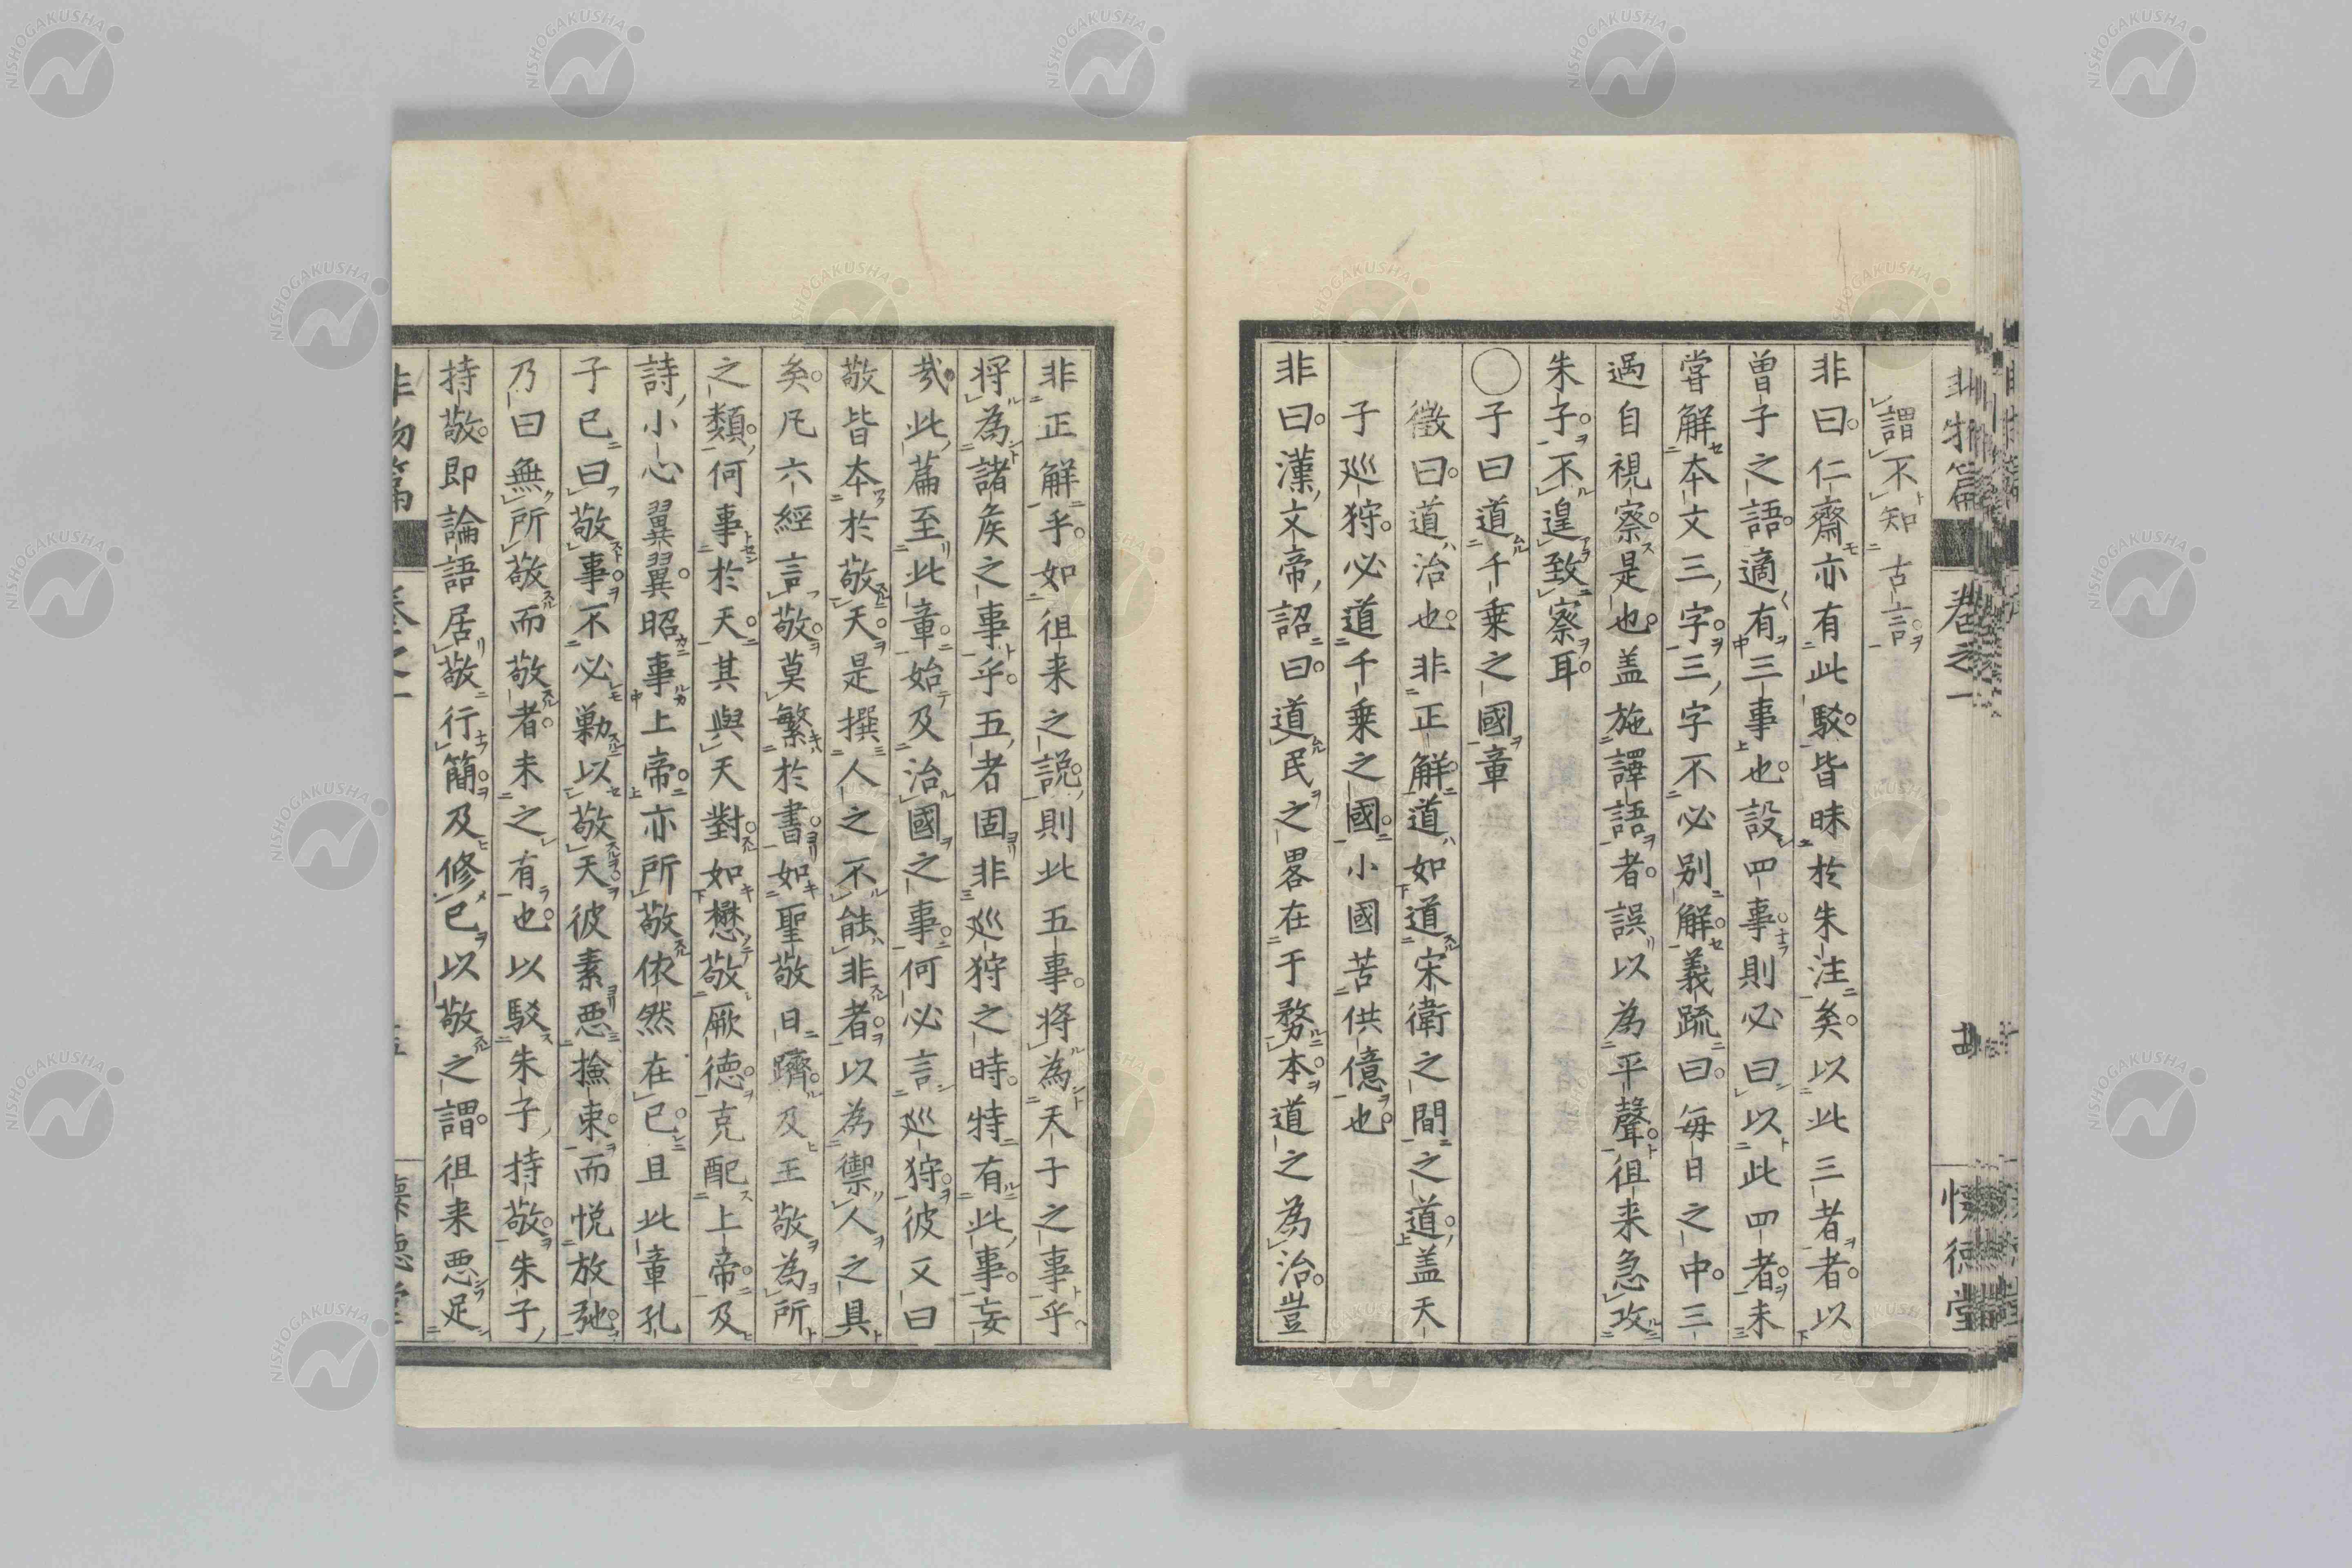 非物篇 卷之一 懐徳堂
謂不知古言
非曰仁齋亦有此駁皆昧於朱注矣以此三者者以
曽子之語適有三事也設四事則必曰以此四者未
嘗解本文三字三字不必别解義疏曰毎日之中三
過自視察是也盖施譯語者誤以為平聲徂来急攻
朱子不遑致察耳
○子曰道千乗之國章
徴曰道治也非正解道如道宋衛之間之道盖天
子巡狩必道千乗之國小國苦供億也
非曰漢文帝詔曰道民之畧在于務本道之為治豈
非正解乎如徂来之説則此五事将為天子之事乎
将為諸矦之事乎五者固非巡狩之時特有此事妄
㢤此篇至此章始及治國之事何必言巡狩彼又曰
敬皆本於敬天是撰人之不能非者以為禦人之具
矣凡六經言敬莫繁於書如聖敬日躋及王敬為所
之類何事於天其與天對如懋敬厥德克配上帝及
詩小心翼翼昭事上帝亦所敬依然在已且此章孔
子已曰敬事不必勦以敬天彼素悪撿束而悦放弛
乃曰無所敬而敬者未之有也以駁朱子持敬朱子
持敬即論語居敬行簡及修已以敬之謂徂来悪足
非物篇